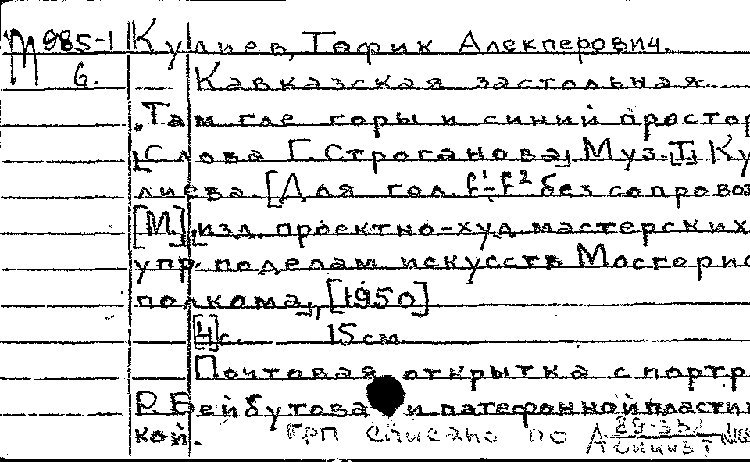 М 985-1 Кулиев, Тофик Алекперович.
6. Кавказская застольная.
"Там где горы и синий простор
[Слова Г. Строганова, Муз. [Т.] Ку
лиева [Для гол. f¹-f² без сопровож
[М.], изд. проектно-худ. мастерских
упр. по делам искусств Мосгорис
полкома, [1950]
[4] с. 15 см.
Почтовая открытка с портр.
Р. Бейбутова и патефонной пластин
кой. ГРП Списано по